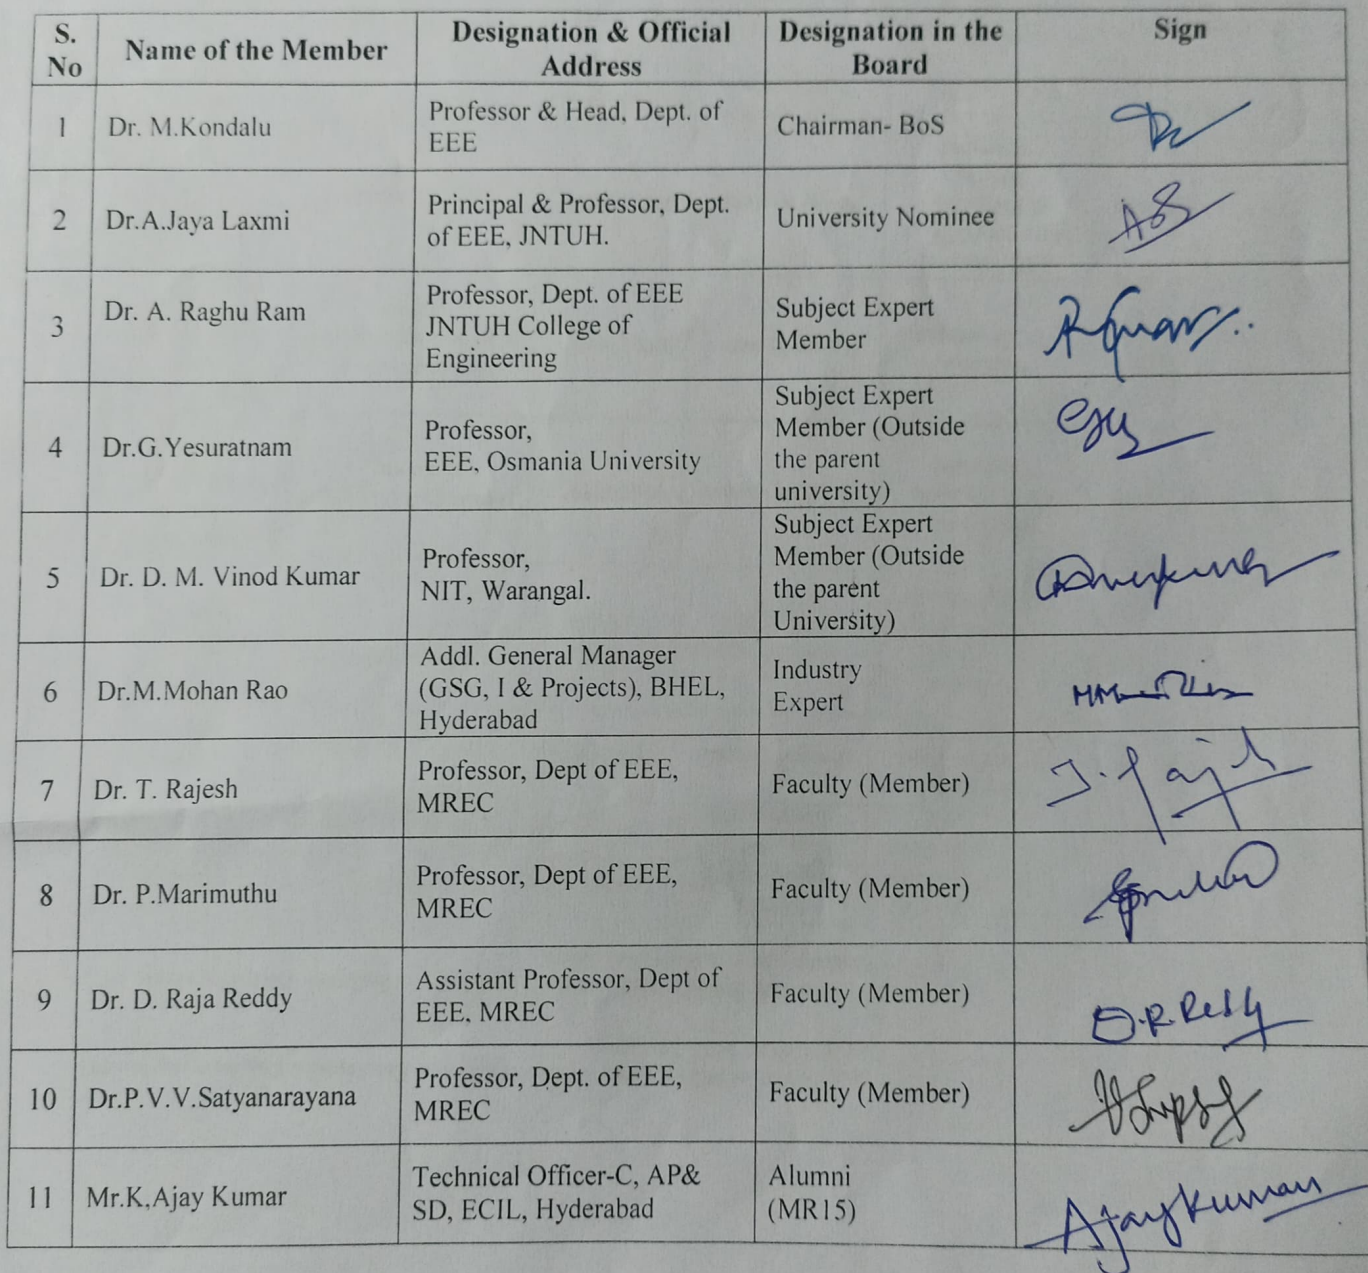 S. No
Name of the Member
Designation & Official Address
Designation in the Board
Sign
1
Dr. M.Kondalu
Professor & Head, Dept. of
EEE
Chairman- BoS
2
Dr.A.Jaya Laxmi
Principal & Professor, Dept.
of EEE, JNTUH.
University Nominee
3
Dr. A. Raghu Ram
Professor, Dept. of EEE
JNTUH College of
Engineering
Subject Expert
Member
4
Dr.G.Yesuratnam
Professor,
EEE, Osmania University
Subject Expert
Member (Outside
the parent
university)
5
Dr. D. M. Vinod Kumar
Professor,
NIT, Warangal.
Subject Expert
Member (Outside
the parent
University)
6
Dr.M.Mohan Rao
Addl. General Manager
(GSG, I & Projects), BHEL,
Hyderabad
Industry
Expert
7
Dr. T. Rajesh
Professor, Dept of EEE,
MREC
Faculty (Member)
T. Rajesh
8
Dr. P.Marimuthu
Professor, Dept of EEE,
MREC
Faculty (Member)
9
Dr. D. Raja Reddy
Assistant Professor, Dept of
EEE, MREC
Faculty (Member)
D.R.Reddy
10
Dr.P.V.V.Satyanarayana
Professor, Dept. of EEE,
MREC
Faculty (Member)
11
Mr.K.Ajay Kumar
Technical Officer-C, AP&
SD, ECIL, Hyderabad
Alumni
(MR15)
Ajay Kumar